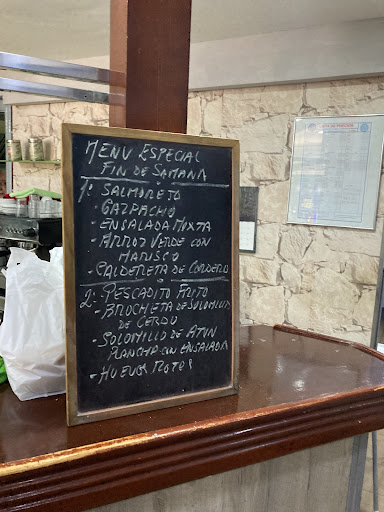 MENU ESPECIAL
FIN DE SAMANA
1º SALMOREJO
- GAZPACHO
- ENSALADA MIXTA
- ARROZ VERDE CON
MARISCO
- CALDERETA DE CORDERO
2º- PESCADITO FRITO
- BROCHETA DE SOLOMILLO
DE CERDO
- SOLOMILLO DE ATUN
PLANCHA CON ENSALADA
- HUEVOS ROTOS